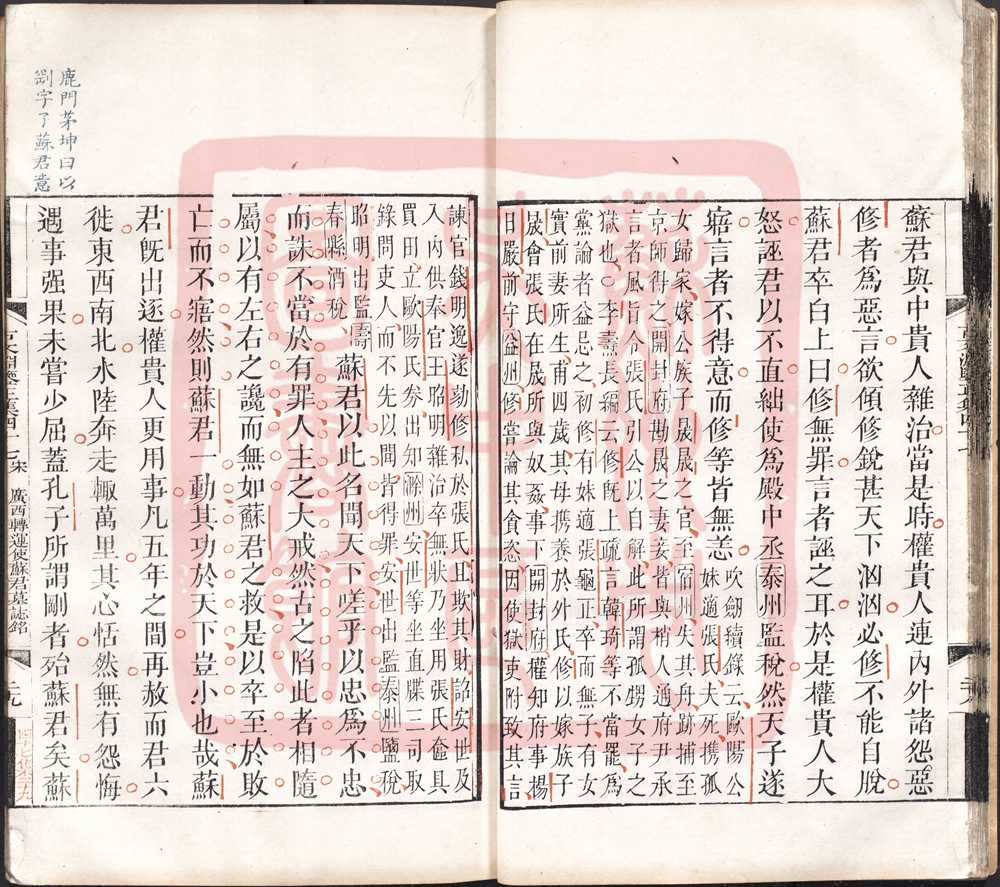 蘇君與中貴人雜治當是時權貴人連內外諸怨惡
修者爲惡言欲傾修銳甚天下洶洶必修不能自脫
蘇君卒白上曰修無罪言者誣之耳於是權貴人大
怒誣君以不直絀使爲殿中丞泰州監稅然天子遂
寤言者不得意而修等皆無恙
吹劒續錄云歐陽公
妹適張氏夫死攜孤
女歸家嫁公族子晟晟之官至宿州失其舟跡捕至
京師得之開封府勘晟之妻妾皆與梢人通府尹承
言者風旨令張氏引公以自解此所謂孤甥女子之
獄也○李燾長編云修旣上疏言韓琦等不當罷爲
黨論者益忌之初修有妹適張龜正卒而無子有女
實前妻所生甫四歲其母攜養於外氏修以嫁族子
晟會張氏在晟所與奴姦事下開封府權知府事揚
日嚴前守益州修嘗論其貪恣因使獄吏附致其言
諫官錢明逸遂劾修私於張氏且欺其財詔安世及
入內供奉官王昭明雜治卒無狀乃坐用張氏奩具
買田立歐陽氏券出知滁州安世等坐直牒三司取
錄問吏人而不先以聞皆得罪安世出監泰州鹽稅
昭明出監壽
春縣酒稅
蘇君以此名聞天下嗟乎以忠爲不忠
而誅不當於有罪人主之大戒然古之陷此者相隨
屬以有左右之讒而無如蘇君之救是以卒至於敗
亡而不寤然則蘇君一動其功於天下豈小也哉蘇
君旣出逐權貴人更用事凡五年之間再赦而君六
徙東西南北水陸奔走輙萬里其心恬然無有怨悔
遇事强果未嘗少屈蓋孔子所謂剛者殆蘇君矣蘇
宋
廣西轉運使蘇君墓誌銘
鹿門茅坤曰以
剛字了蘇君意